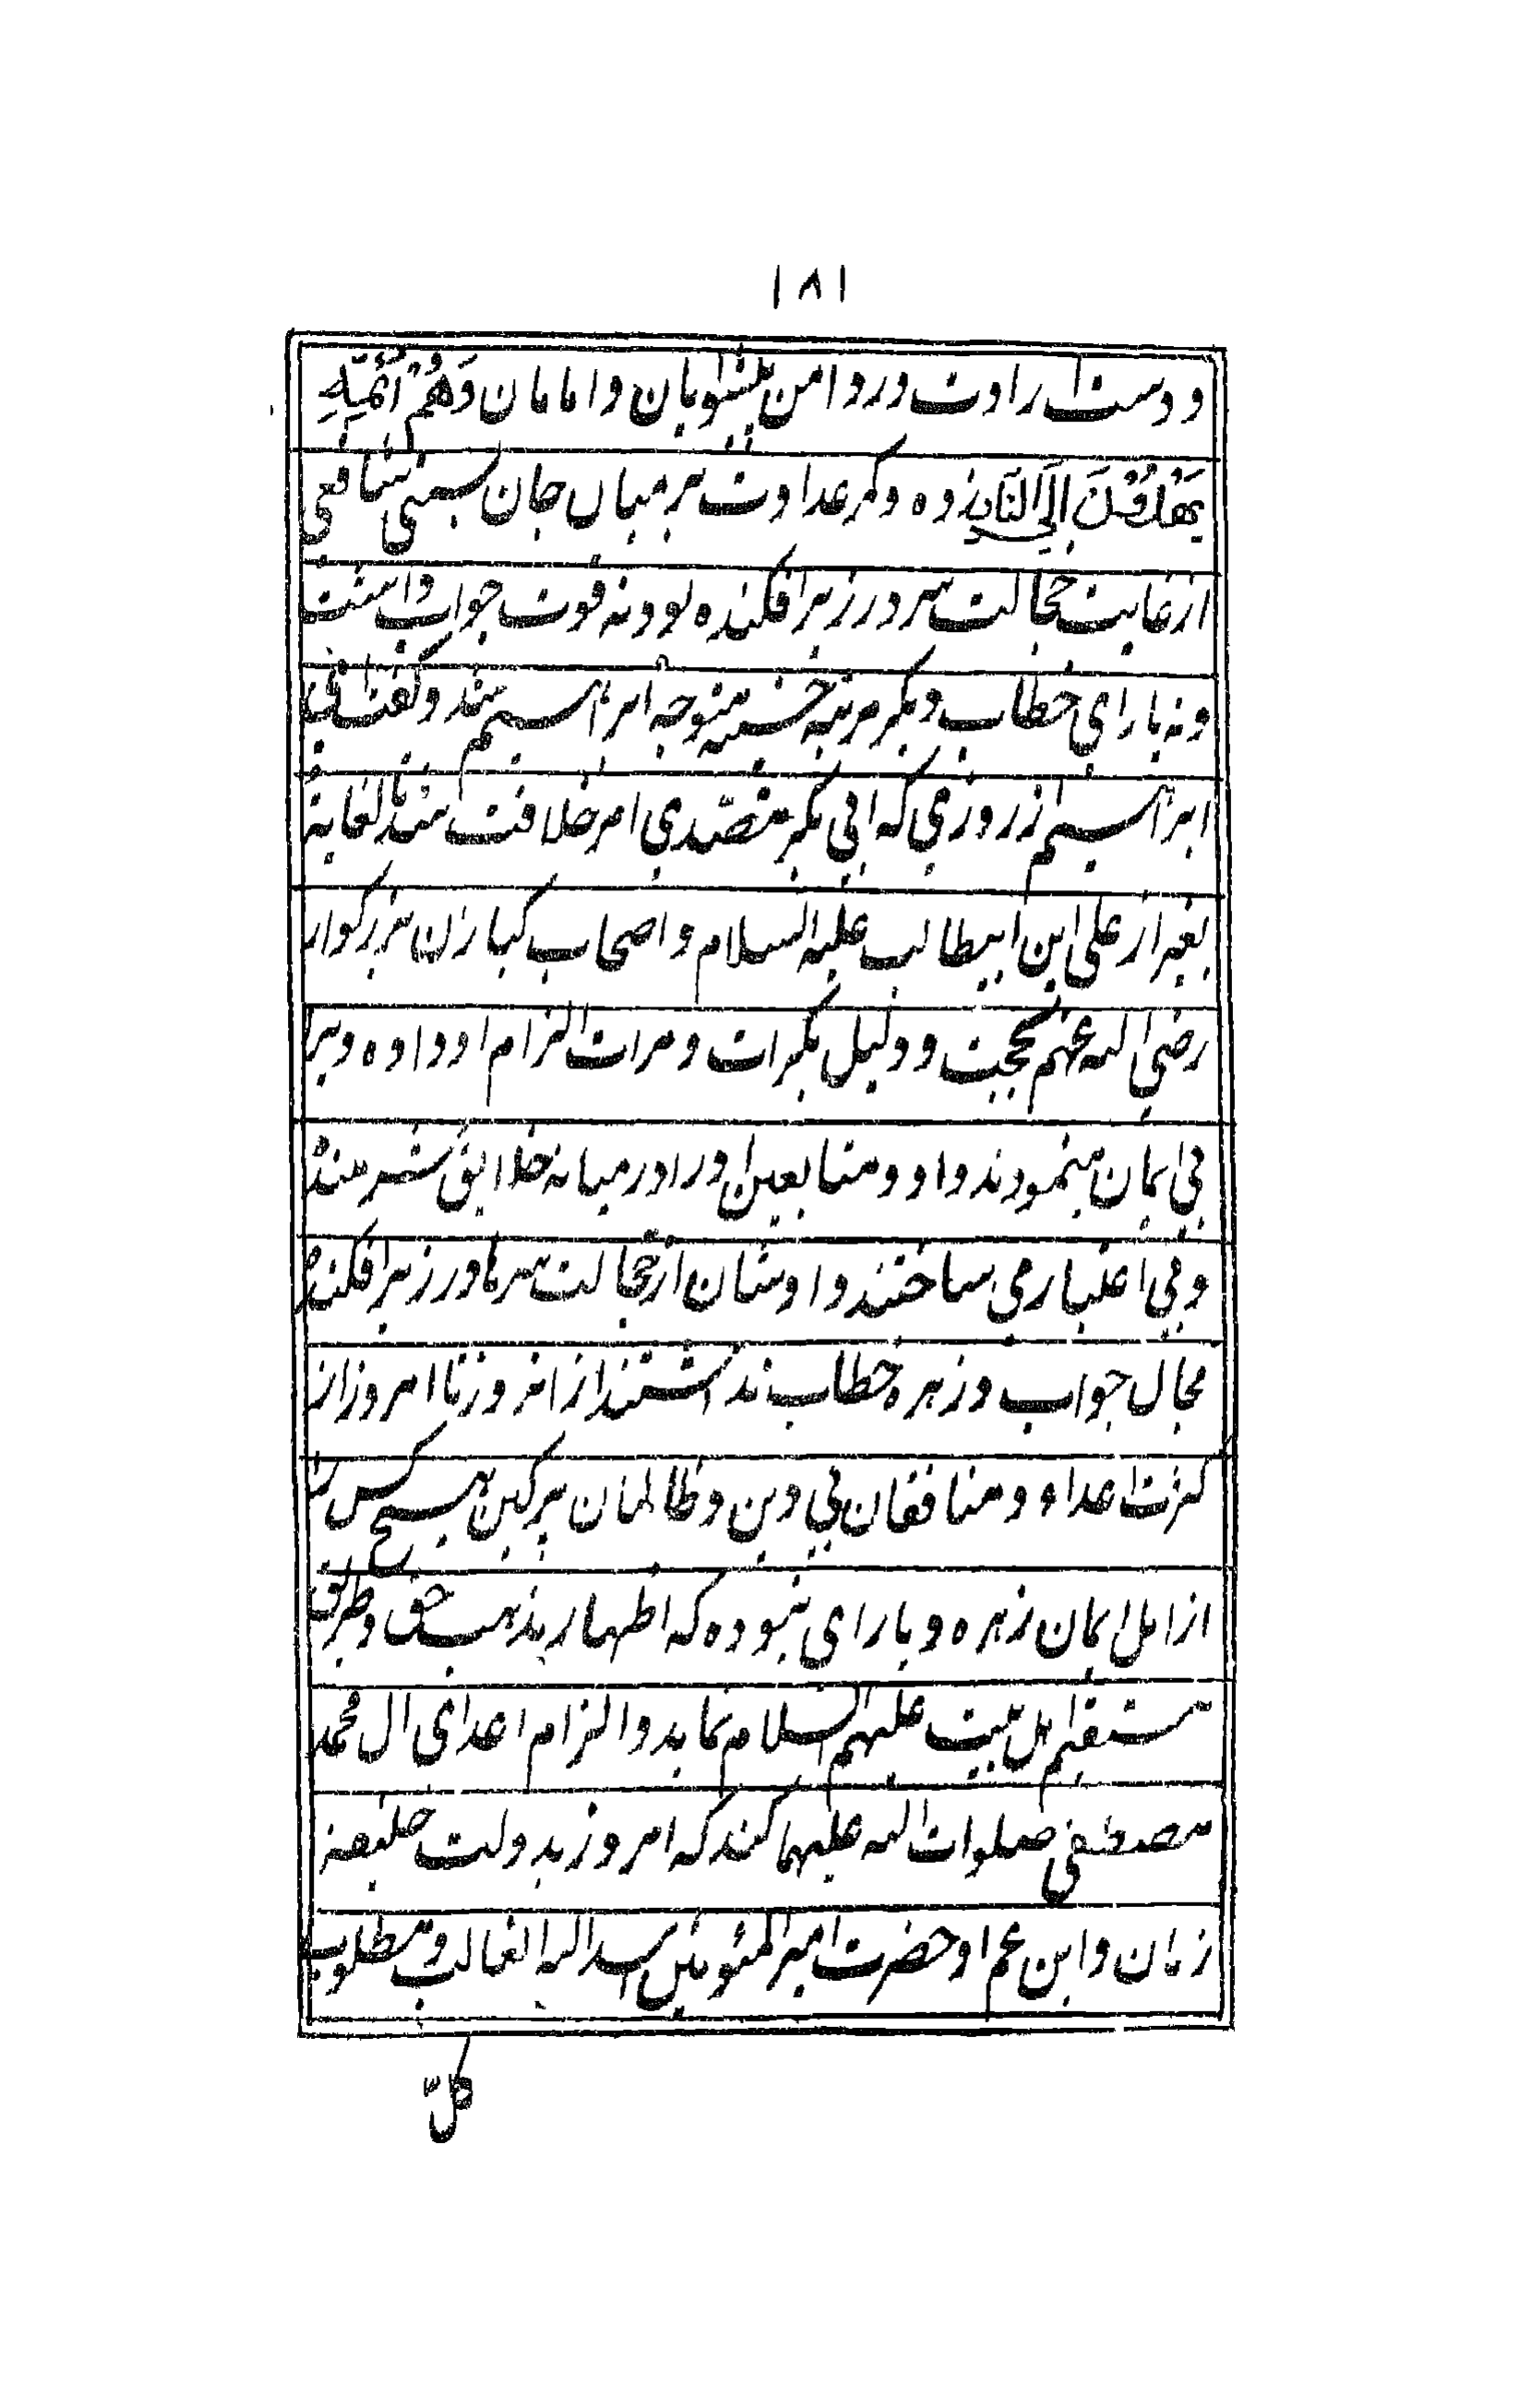 ١٨١
و دست ارادت در دامن پیشوایان و امامان وَهُم اَئِمّةٍ
یَهْدُوْنَ اِلَی النَّارِ زده و کمر عداوت بر میان جان بستی شافعی
از غایت خجالت سر در زیر افکنده بود و نه قوت جواب داشت
و نه یارای خطاب دیگر مرتبه حسنیه متوجه ابراهیم شد و گفت ای
ابراهیم از روزی که ابی بکر متصدی امر خلافت شد تا لغایة
بغیر از علی ابن ابیطالب علیه السلام و اصحاب کبار ان بزرگوار
رضی الله عنهم بحجت و دلیل بکرات و مرات الزام او داده و برا
بی ایمان مینمودند و او و متابعین او را در میانه خلایق شرمنده
و بی اعتبار می ساختند و اوشان از خجالت سرها در زیر افکنده
مجال جواب و زهره خطاب نداشتند از انروز تا امروز از
کثرت اعدا و منافقان بی دین و ظالمان پر کین هیچ کس را
از اهل ایمان زهره و یارای نبوده که اظهار مذهب حق و طریق
مستقیم اهل بیت علیهم السلام نماید و الزام اعدای ال محمد
مصطفی صلوات الله علیهما کند که امروز بدولت خلیفه
زمان و ابن عم او حضرت امیر المئومنین اسد الله الغالب و مطلوب
کلّ